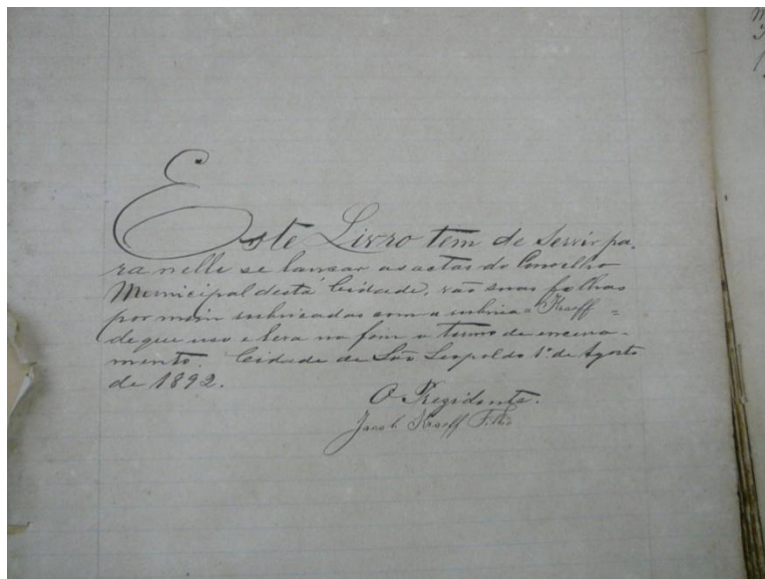 Este Livro tem de servir pa-
ra nelle se lançar as actas do Conselho
Municipal desta Cidade, vão suas folhas
por mim rubricadas com a rubrica = Kraeff =
de que uso e leva no fim o termo de encerra-
mento. Cidade de São Leopoldo 1º de Agosto
de 1892.
O Presidente.
Jacob Kraeff Filho